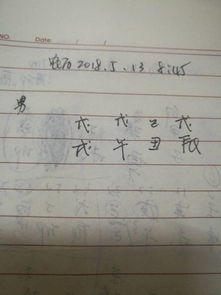 NO.
Date: / /
2018.5.13 8:45
男
戊 戊 己 戊
戌 午 丑 辰